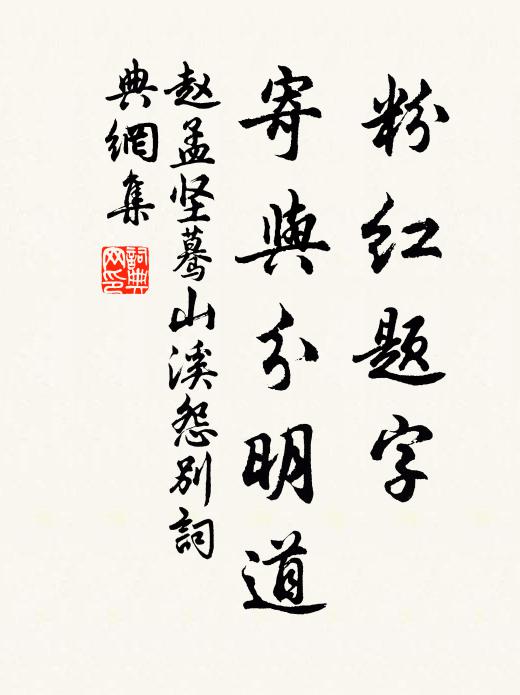 粉红题字
寄與分明道
赵孟坚蓦山溪怨别詞
典網集
詞典
网印